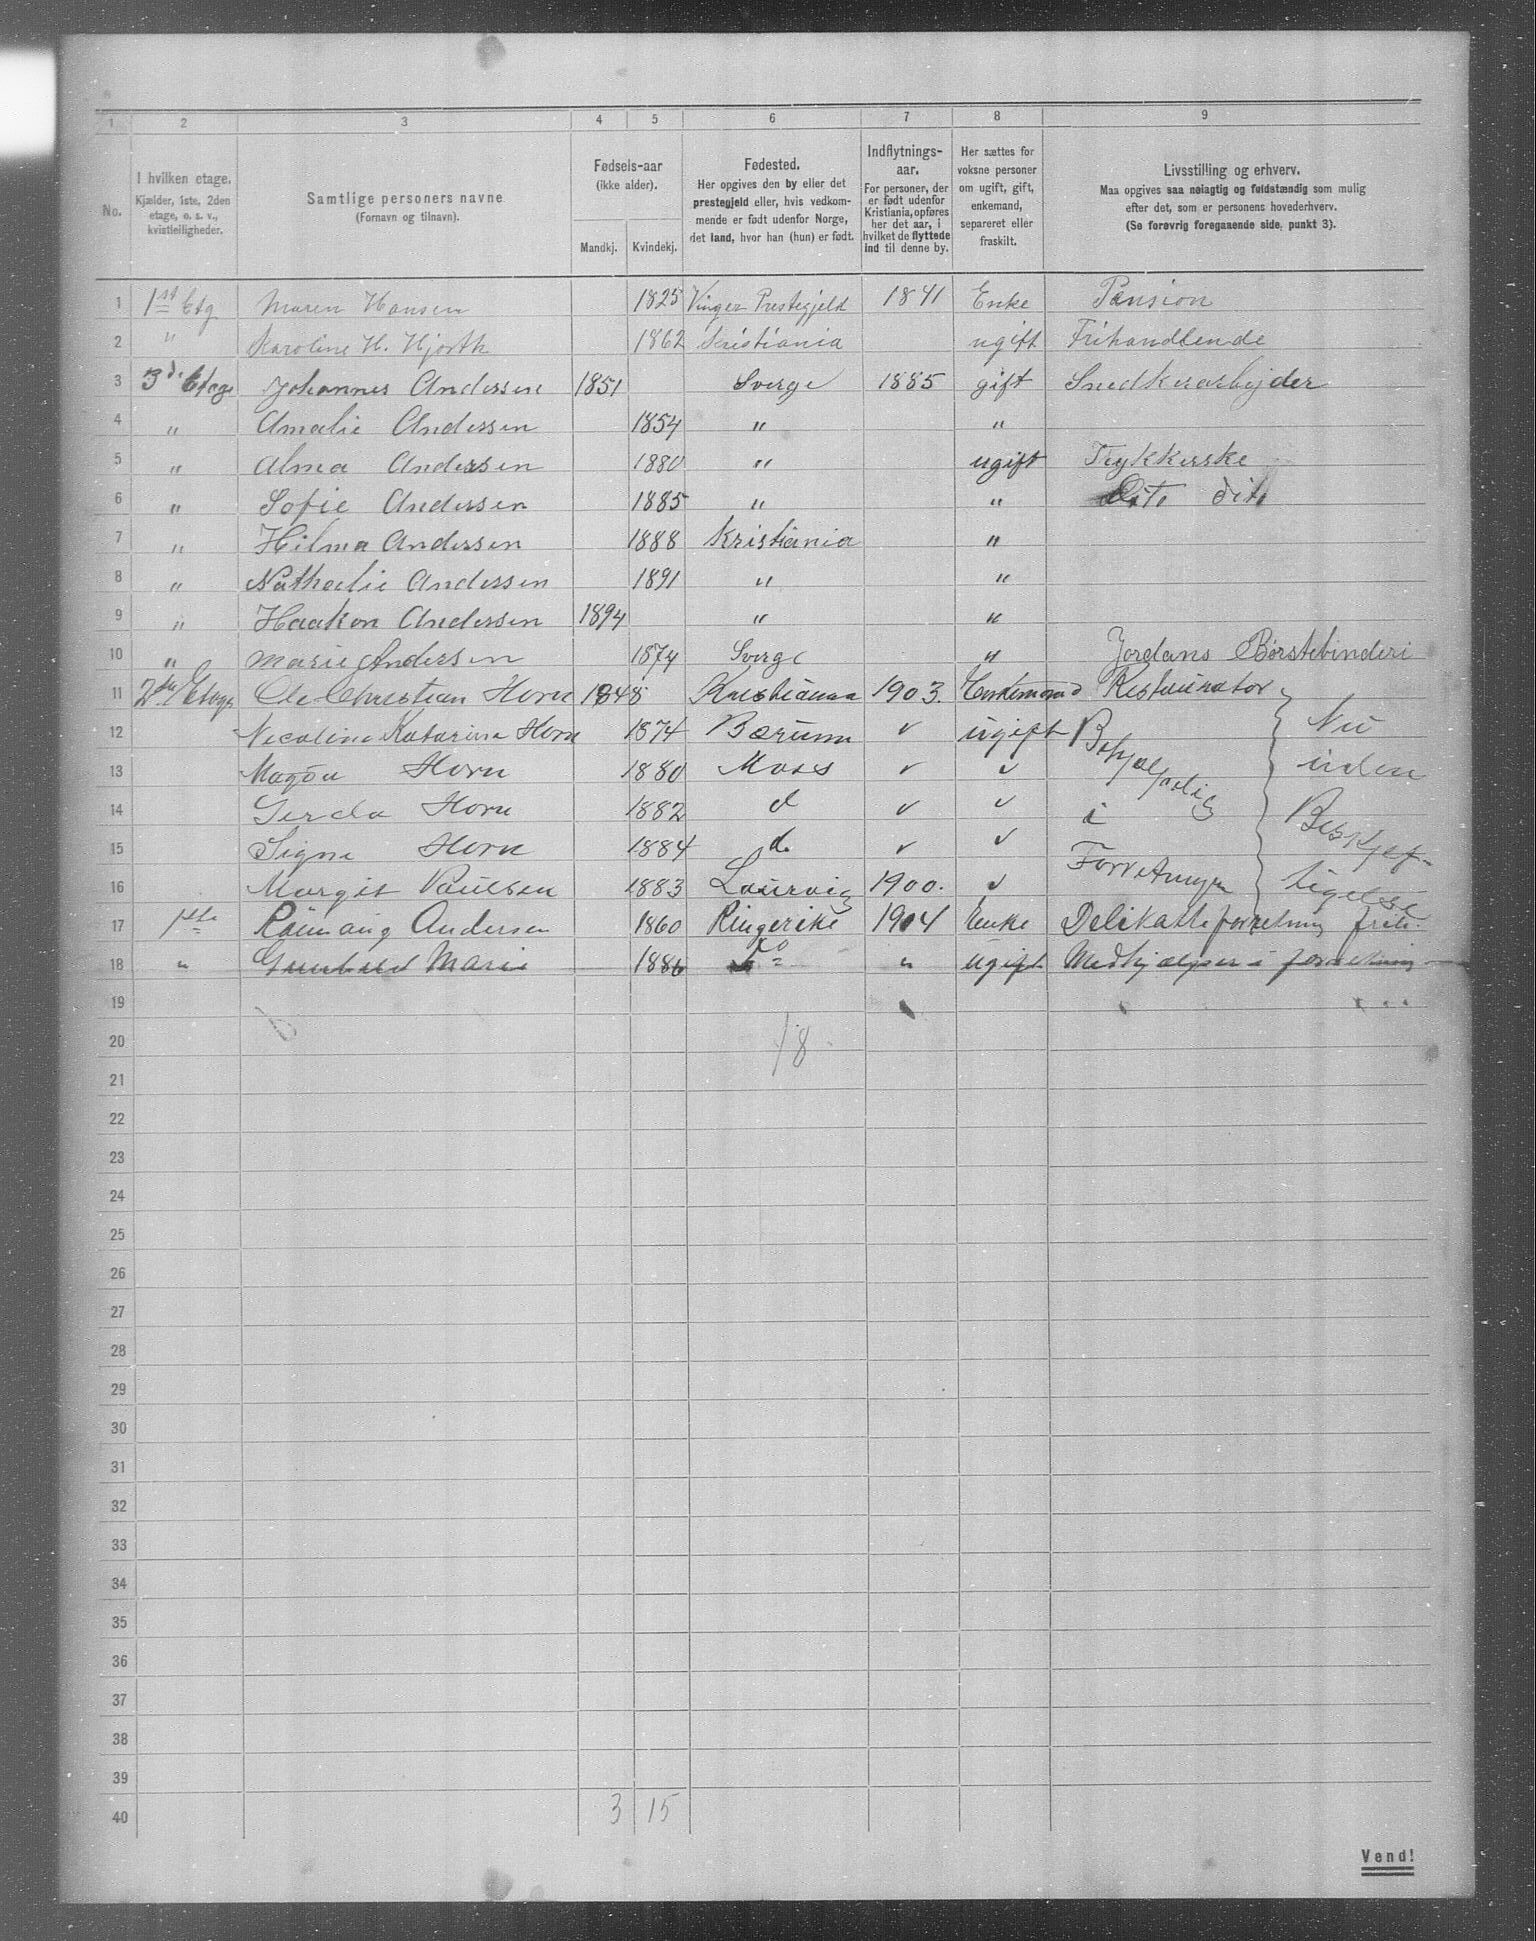 1 2 3 4 5 6 7 8 9
No.
I hvilken etage.
Kjælder, 1ste, 2den
etage, o. s. v.,
kvistleiligheder.
Samtlige personers navne
(Fornavn og tilnavn).
Fødsels-aar
(ikke alder).
Mandkj. Kvindekj.
Fødested.
Her opgives den by eller det
prestegjeld eller, hvis vedkom-
mende er født udenfor Norge,
det land, hvor han (hun) er født.
Indflytnings-
aar.
For personer, der
er født udenfor
Kristiania, opføres
her det aar, i
hvilket de flyttede
ind til denne by.
Her sættes for
voksne personer
om ugift, gift,
enkemand,
separeret eller
fraskilt.
Livsstilling og erhverv.
Maa opgives saa nøiagtig og fuldstændig som mulig
efter det, som er personens hovederhverv.
(Se forøvrig foregaaende side, punkt 3).
1 1st Etg Maren Hansen 1825 Vinger Prestegjeld 1841 Enke Pension
2 " Karoline H. Hjorth 1862 Kristiania ugift Frihandlende
3 3di Etage Johannes Anderssen 1851 Sverge 1885 gift Snedkerarbejder
4 " Amalie Anderssen 1854 " "
5 " Alma Anderssen 1880 " ugift Trykkerske
6 " Sofie Anderssen 1885 " " Dito dito
7 " Hilma Anderssen 1888 Kristiania "
8 " Nathalie Anderssen 1891 " "
9 " Haakon Anderssen 1894 " "
10 " Marie Andersen 1874 Sverge " Jordans Børstebinderi
11 2den Etage Ole Christian Horn 1848 Kristiania 1903. Enkemand Restauratør
12 Nicoline Katarina Horn 1874 Bærum ✓ ugift Beskjæftiget
13 Magda Horn 1880 Moss ✓ ✓
14 Gerda Horn 1882 d ✓ ✓ i
15 Signe Horn 1884 d. ✓ ✓
16 Margit Paulsen 1883 Laurvig 1900. ✓ Forretningen
Nu
uden
Beskjæf-
tigelse
17 1ste Andersen 1860 Ringerike 1904 Enke Delikatesseforretning
18 " Gunhild Marie 1886 do " ugift Medhjælper i forretning
19
20 18
21
22
23
24
25
26
27
28
29
30
31
32
33
34
35
36
37
38
39
40 3 15
Vend!